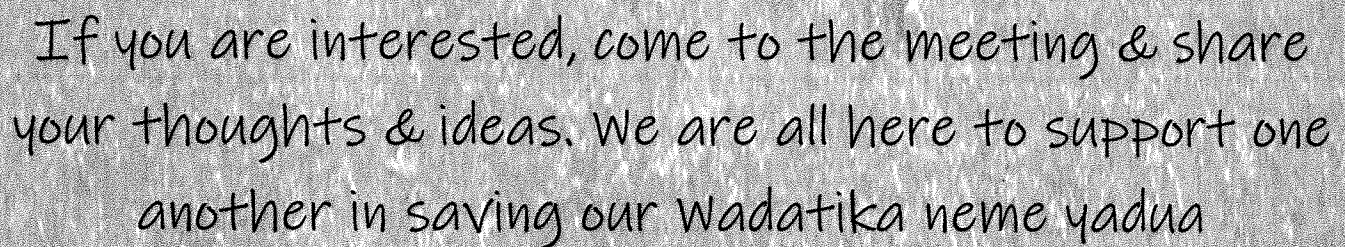 If you are interested, come to the meeting & share
your thoughts & ideas. We are all here to support one
another in saving our Wadatika neme yadua